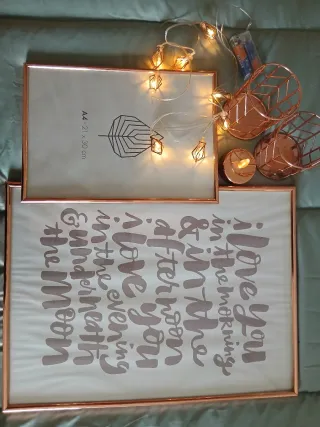 A4 21 x 30 cm
i love you
in the morning
& in the
afternoon
i love you
in the evening
& underneath
the moon